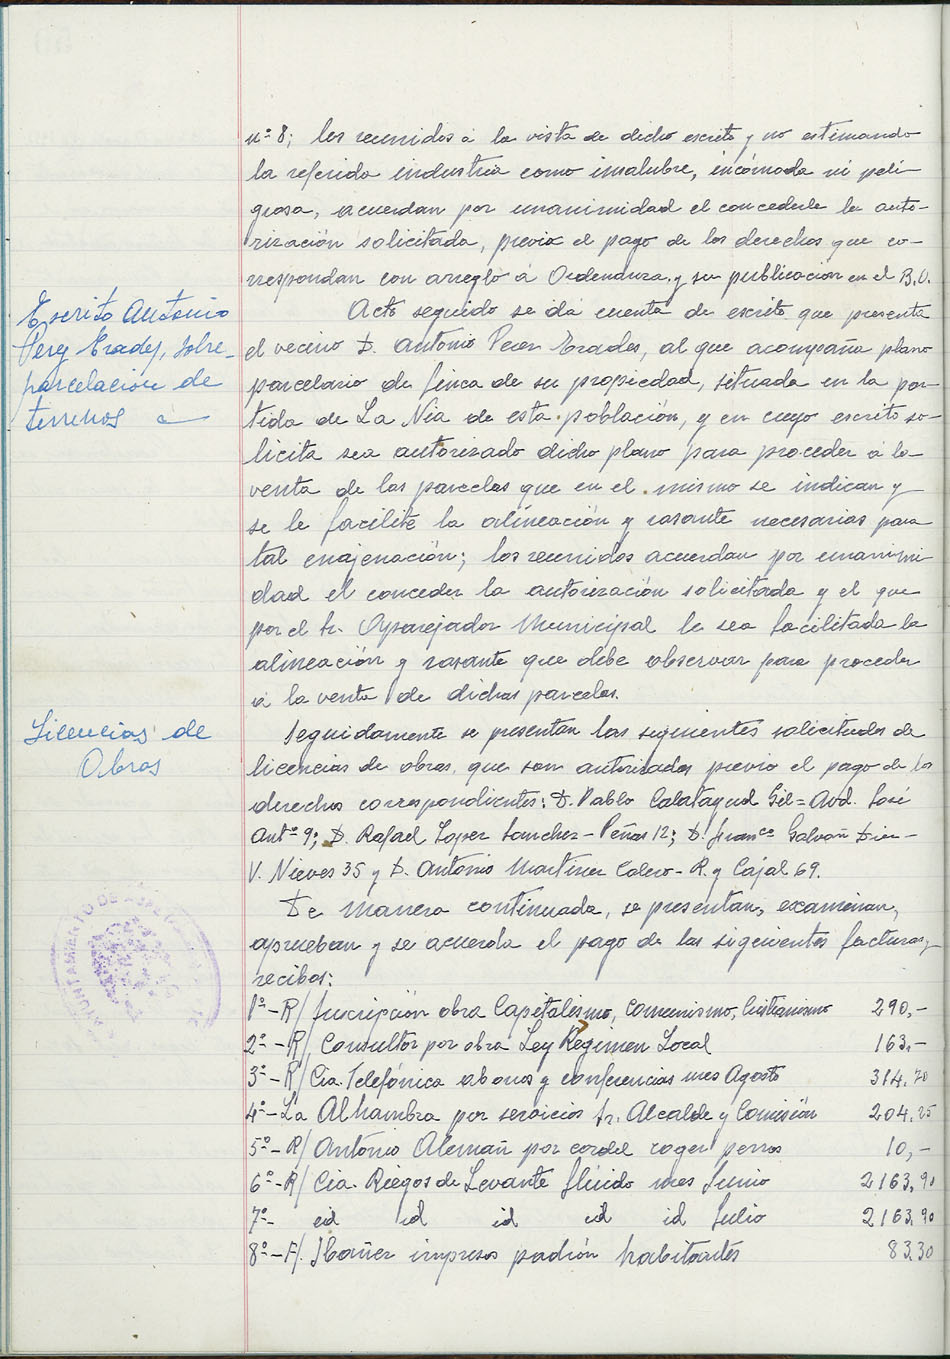 nº 8; los reunidos a la vista de dicho escrito y no estimando
la referida industria como insalubre, incómoda ni peli-
grosa, acuerdan por unanimidad el concederle la auto-
rización solicitada, previo el pago de los derechos que co-
rrespondan con arreglo á Ordenanza y su publicación en el B.O.
Escrito Antonio
Perez Erades, sobre
parcelación de
terrenos
Acto seguido se dá cuenta de escrito que presenta
el vecino D. Antonio Perez Erades, al que acompaña plano
parcelario de finca de su propiedad, situada en la par-
tida de La Nia de esta población, y en cuyo escrito so-
licita sea autorizado dicho plano para proceder á la
venta de las parcelas que en el mismo se indican y
se le facilite la alineación y rasante necesarias para
tal enajenación; los reunidos acuerdan por unanimi-
dad el conceder la autorización solicitada y el que
por el Sr. Aparejador Municipal le sea facilitada la
alineación y rasante que debe observar para proceder
á la venta de dichas parcelas.
Licencias de
Obras
Seguidamente se presentan las siguientes solicitudes de
licencias de obras, que son autorizadas previo el pago de los
derechos correspondientes: D. Pablo Calatayud Gil = Avd. José
Antº 9; D. Rafael Lopez Sanchez - Peñas 12; D. Franco Galvañ Diez -
V. Nieves 35 y D. Antonio Martinez Calero - R. y Cajal 69.
De manera continuada, se presentan, examinan,
aprueban y se acuerda el pago de las siguientes facturas y
recibos:
1º - R/ Suscripción obra Capitalismo, Comunismo, Cristianismo 290,-
2º - R/ Consultor por obra Ley Régimen Local 163,-
3º - R/ Cia. Telefónica abonos y conferencias mes Agosto 314,70
4º - La Alhambra por servicios Sr. Alcalde y Comisión 204,25
5º - R/ Antonio Alemañ por cordel coger perros 10,-
6º - R/ Cia. Riegos de Levante flúido mes Junio 2163,90
7º - id id id id id Julio 2163,90
8º - F/. Ibañez impresos padrón habitantes 83,30
AYUNTAMIENTO DE ASPE